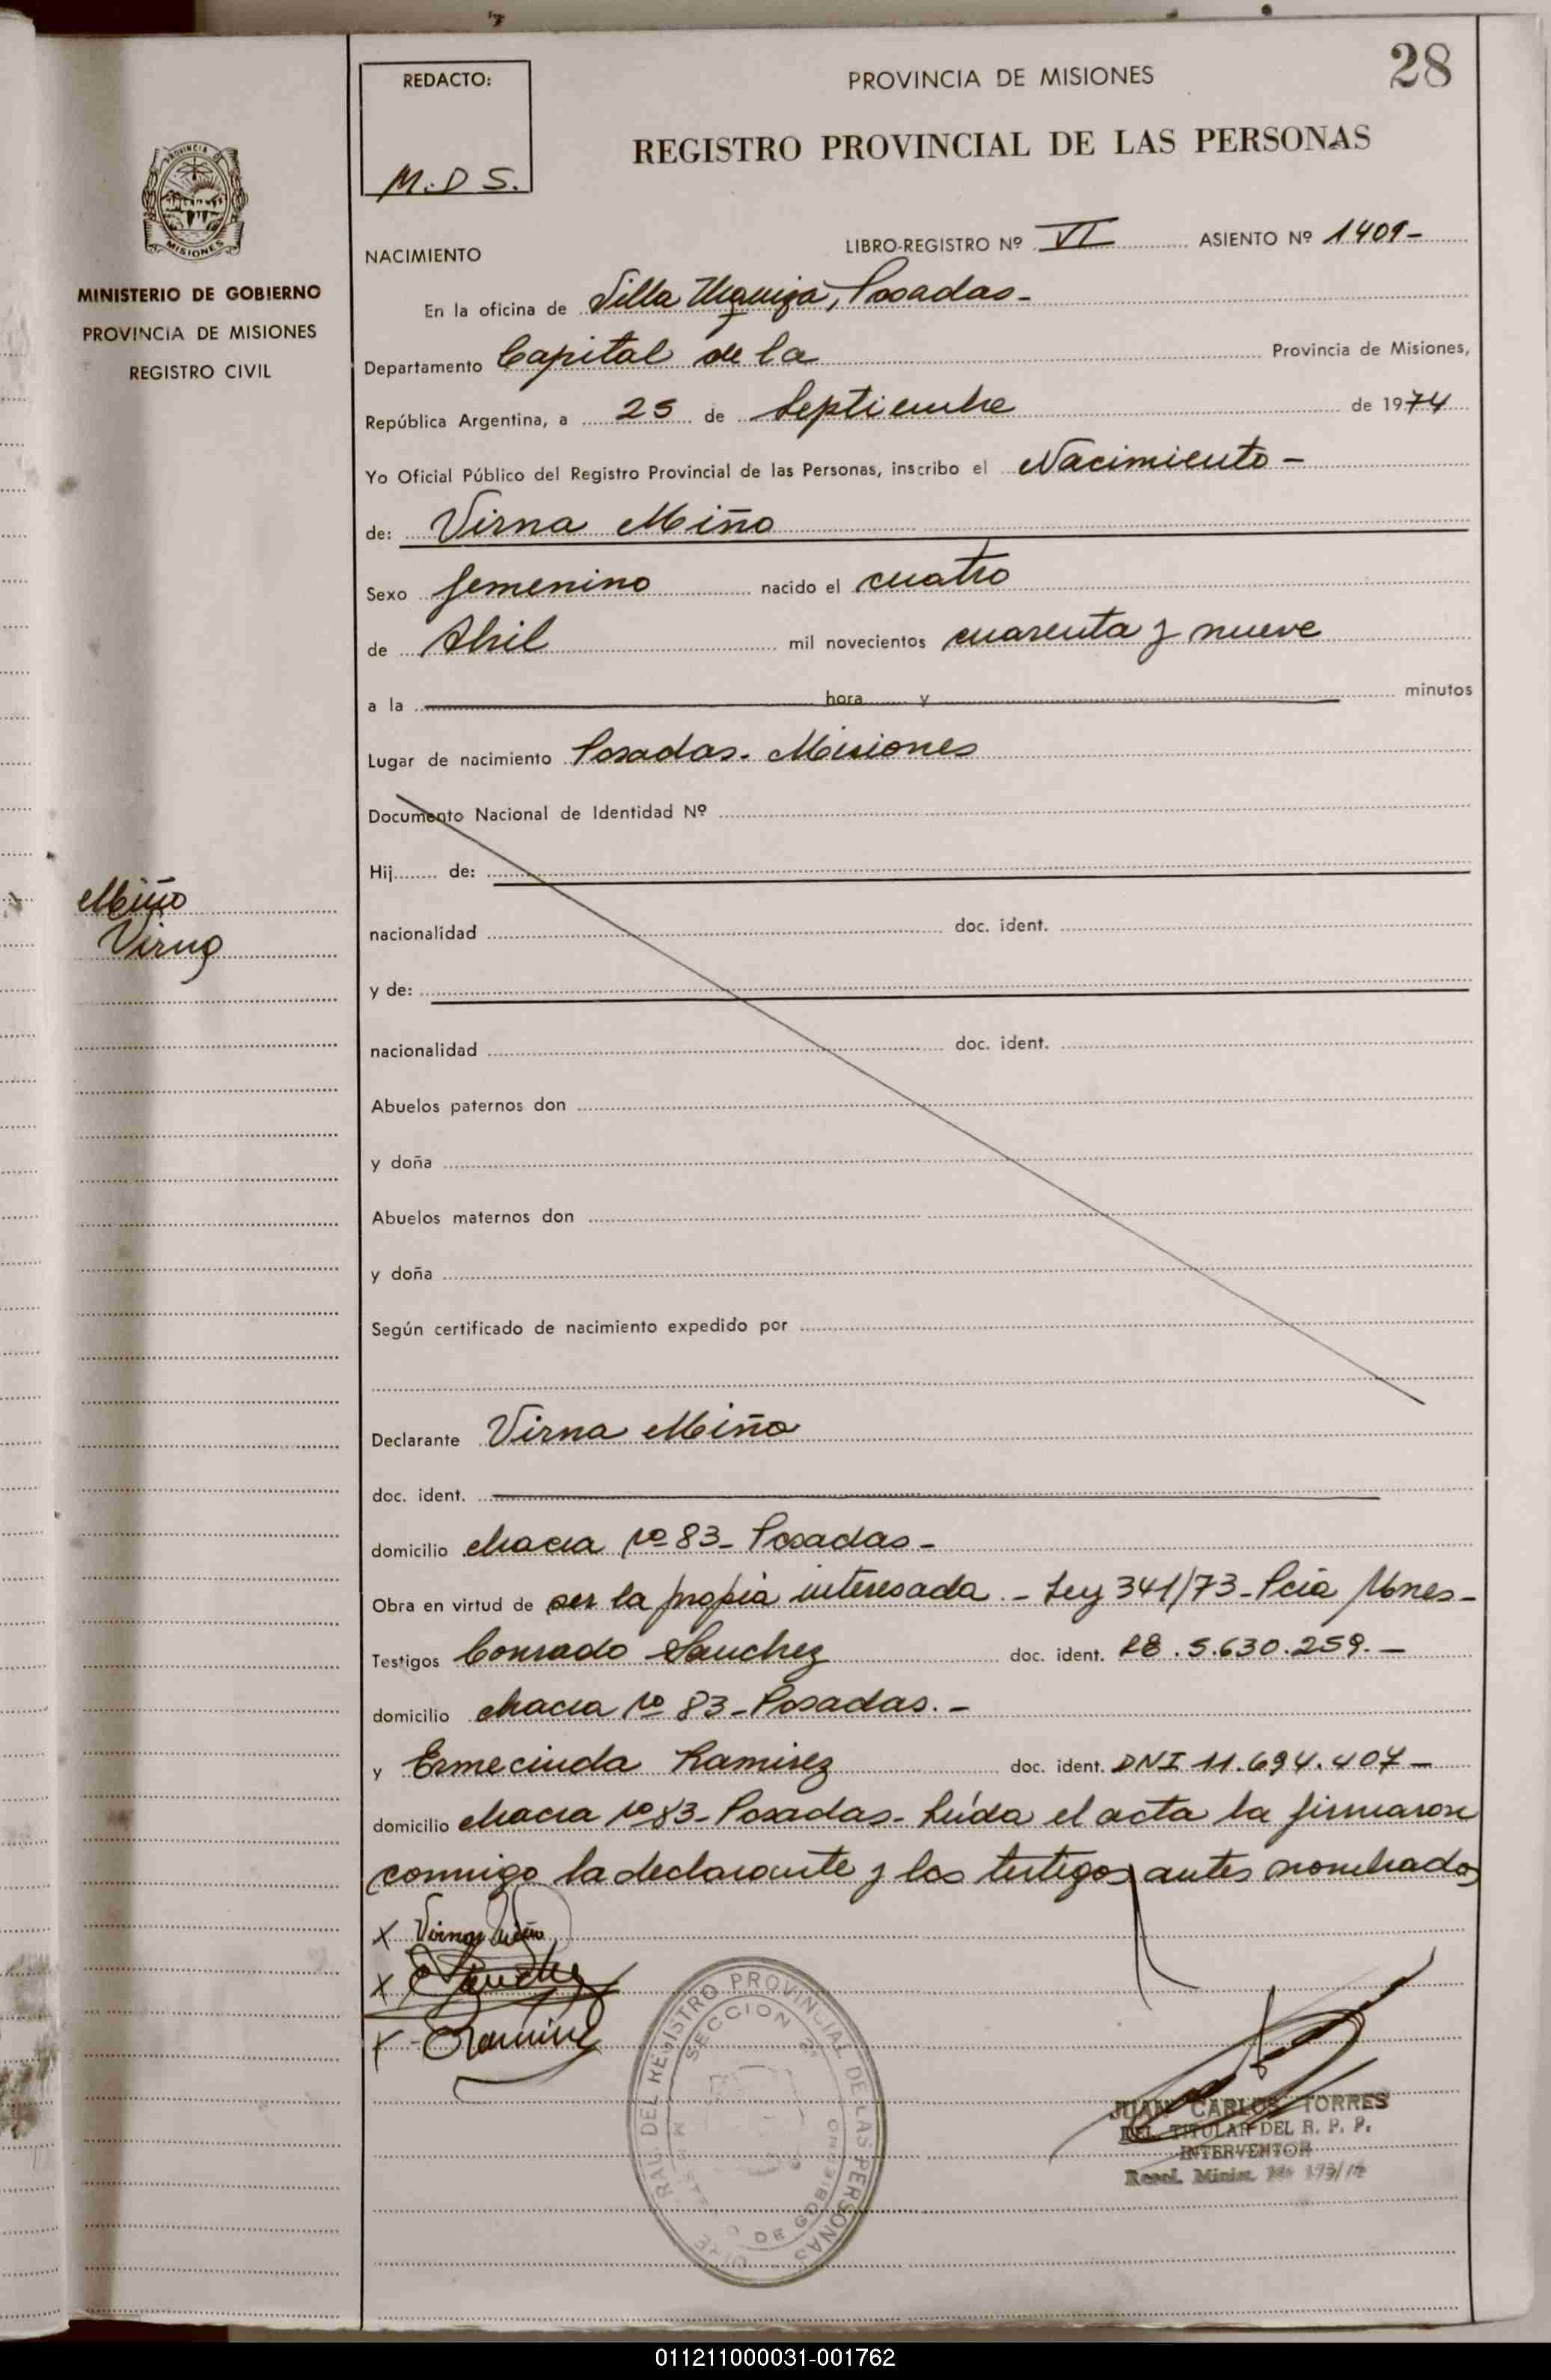 28
REDACTO:
M.D S.
PROVINCIA DE MISIONES
REGISTRO PROVINCIAL DE LAS PERSONAS
PROVINCIA DE
MISIONES
MINISTERIO DE GOBIERNO
PROVINCIA DE MISIONES
REGISTRO CIVIL
NACIMIENTO
LIBRO-REGISTRO Nº VI ASIENTO Nº 1409-
En la oficina de Villa Urquiza, Posadas-
Departamento Capital de la Provincia de Misiones,
República Argentina, a 25 de Septiembre de 1974
Yo Oficial Público del Registro Provincial de las Personas, inscribo el Nacimiento-
de: Virna Miño
Sexo femenino nacido el cuatro
de Abril mil novecientos cuarenta y nueve
a la hora y minutos
Lugar de nacimiento Posadas. Misiones
Documento Nacional de Identidad Nº
Hij de:
Miño
Virna
nacionalidad doc. ident.
y de:
nacionalidad doc. ident.
Abuelos paternos don
y doña
Abuelos maternos don
y doña
Según certificado de nacimiento expedido por
Declarante Virna Miño
doc. ident.
domicilio chacra Nº 83- Posadas-
Obra en virtud de ser la propia interesada.- Ley 341/73- Pcia Mnes-
Testigos Conrado Sanchez doc. ident. LE. 5.630.259.-
domicilio chacra Nº 83-Posadas.-
y Ermecinda Ramirez doc. ident. DNI 11.694.407-
domicilio chacra Nº83-Posadas- Leída el acta la firmaron
conmigo la declarante y los testigos antes nombrados
X Virna Miño
X C Sanchez
X - E Ramirez
DEL REGISTRO PROVINCIAL DE LAS PERSONAS
SECCION 2ª
DE GOBIERNO
JUAN CARLOS TORRES
DEL. TITULAR DEL R. P. P.
INTERVENTOR
Resol. Minist. Nº
011211000031-001762